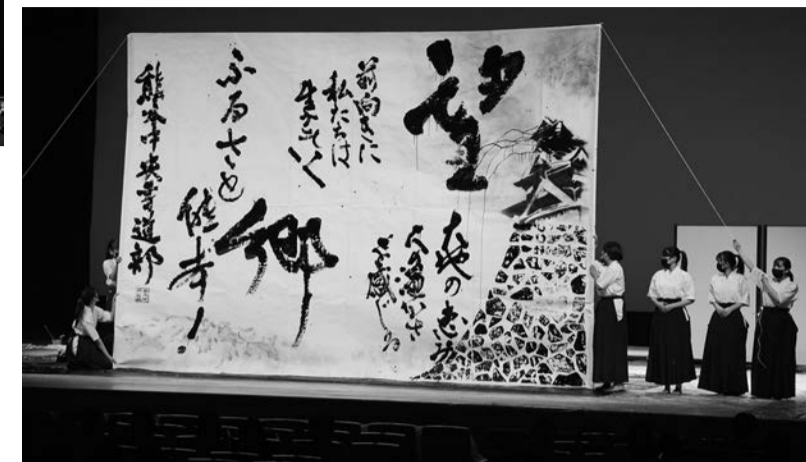 望
大地の恵み
人の温かさ
を感じ
前向きに
私たちは
生きていく
郷
ふるさと
熊本！
熊本中央書道部